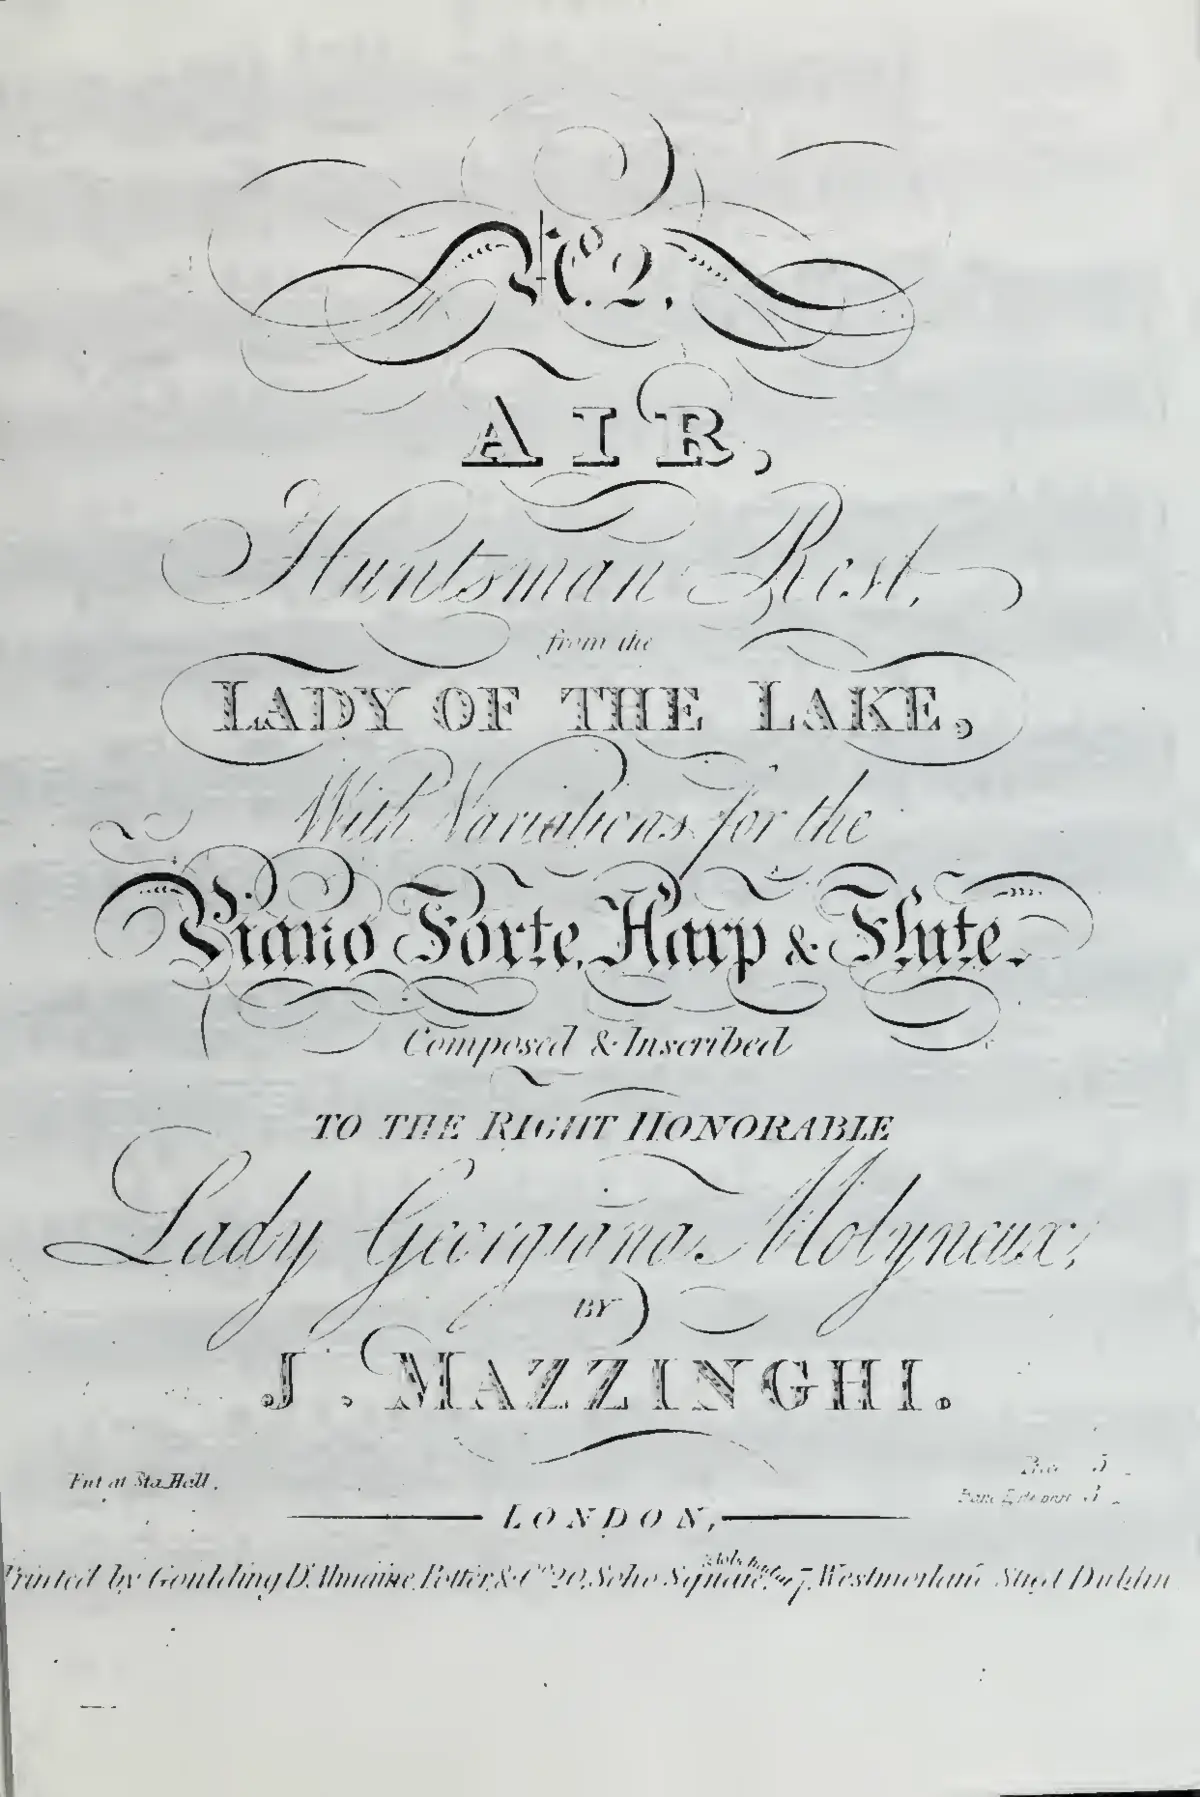 No. 2.
AIR,
Huntsman Rest,
from the
LADY OF THE LAKE,
With Variations for the
Piano Forte, Harp & Flute.
Composed & Inscribed
TO THE RIGHT HONORABLE
Lady Georgiana Molyneux,
BY
J. MAZZINGHI.
Ent. at Sta. Hall.
LONDON,
Printed by Goulding D'Almaine Potter & Co. 20, Soho Square, & 7, Westmorland Street Dublin